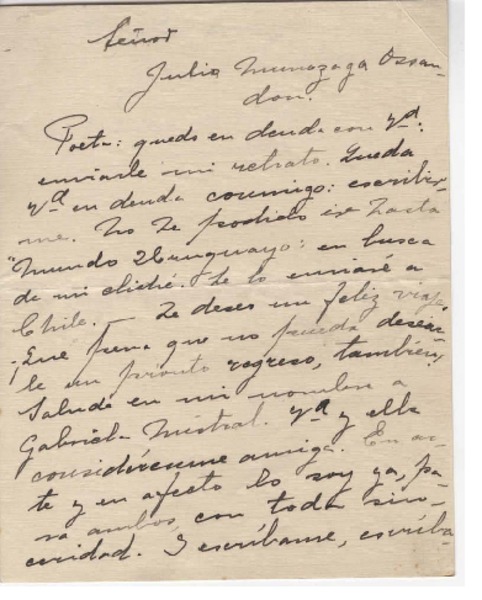 Señor
Julio Munizaga Ossan-
don.
Poeta: quedo en deuda con Vd:
enviarle mi retrato. Queda
Vd en deuda conmigo: escribir-
me. No he podido ir hasta
"Mundo Uruguayo": en busca
de mi cliché. Se lo enviaré a
Chile. — Le deseo un feliz viaje
¡Que pena que no pueda desear-
le un pronto regreso, también!
Salude en mi nombre a
Gabriela Mistral. Vd y ella
considérenme amiga. En ar-
te y en afecto lo soy ya, pa-
ra ambos, con toda sin-
ceridad. I escríbame, escriba